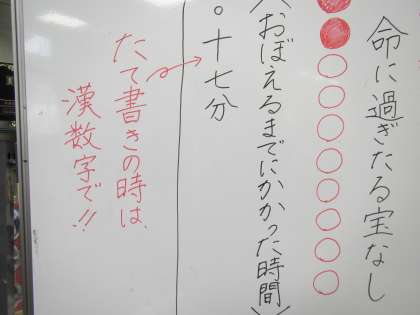 命に過ぎたる宝なし
〈おぼえるまでにかかった時間〉
。十七分
たて書きの時は、
漢数字で!!